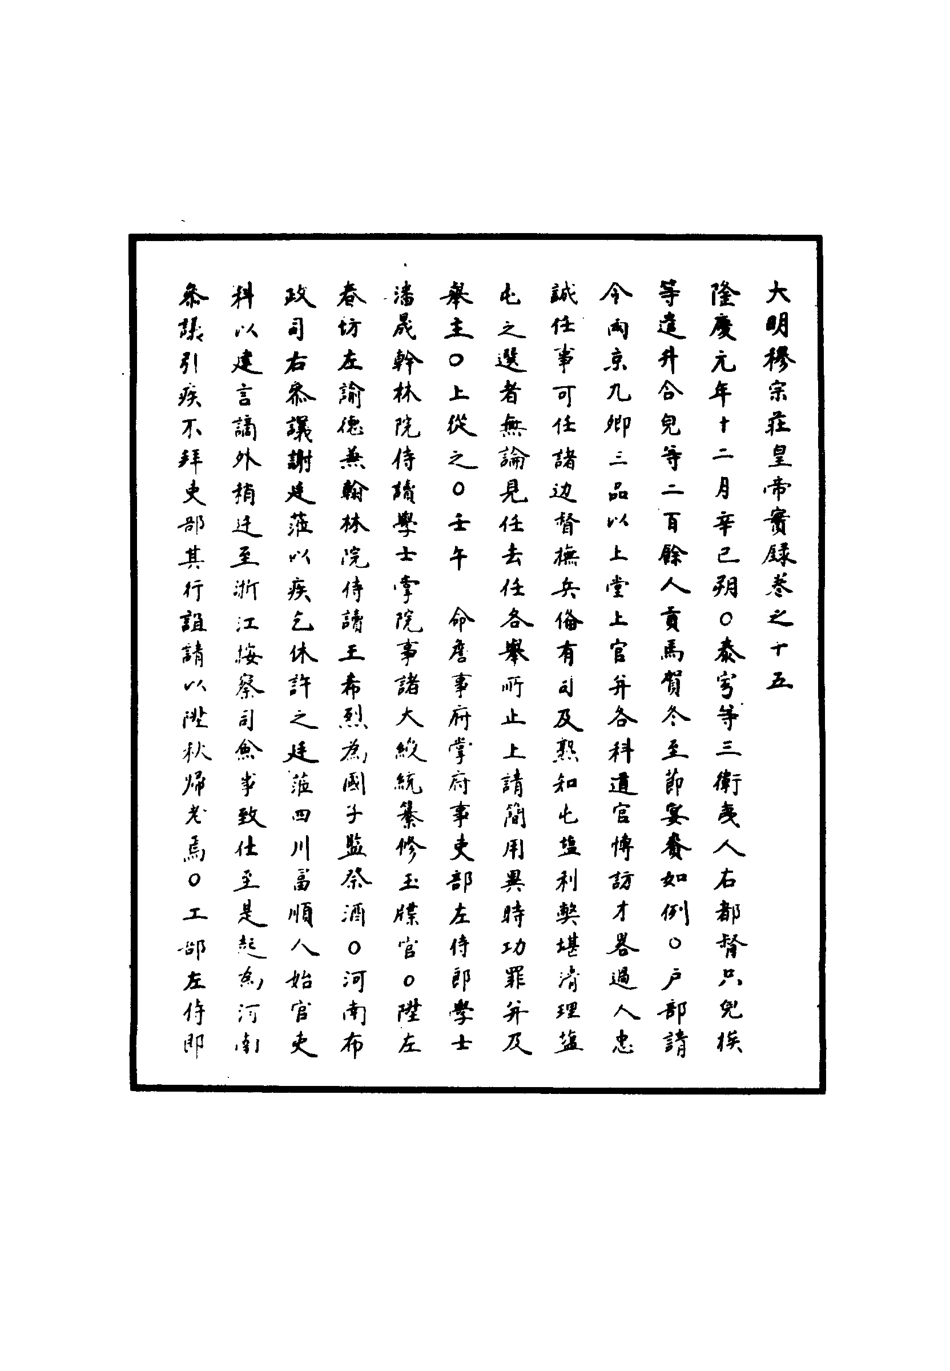 大明穆宗莊皇帝實録卷之十五
隆慶元年十二月辛已朔○泰寧等三衛夷人右都督只兒挨
等遣升合兒等二百餘人貢馬賀冬至節宴賚如例○户部請
令两京九卿三品以上堂上官并各科道官博訪才畧過人忠
誠任事可任諸边督撫兵俻有司及熟知屯塩利弊堪清理塩
屯之選者無論見任去任各舉所止上請簡用異時功罪并及
舉主○上從之○壬午　命詹事府掌府事吏部左侍郎學士
潘晟幹林院侍讀學士掌院事諸大綬統纂修玉牒官○陞左
春坊左諭德兼翰林院侍讀王希烈為國子監祭酒○河南布
政司右叅議謝廷蒞以疾乞休許之廷蒞四川富順人始官吏
科以建言謫外稍迁至浙江按察司僉事致仕至是起為河南
叅議引疾不拜吏部其行誼請以陞秩歸老焉○工部左侍郎